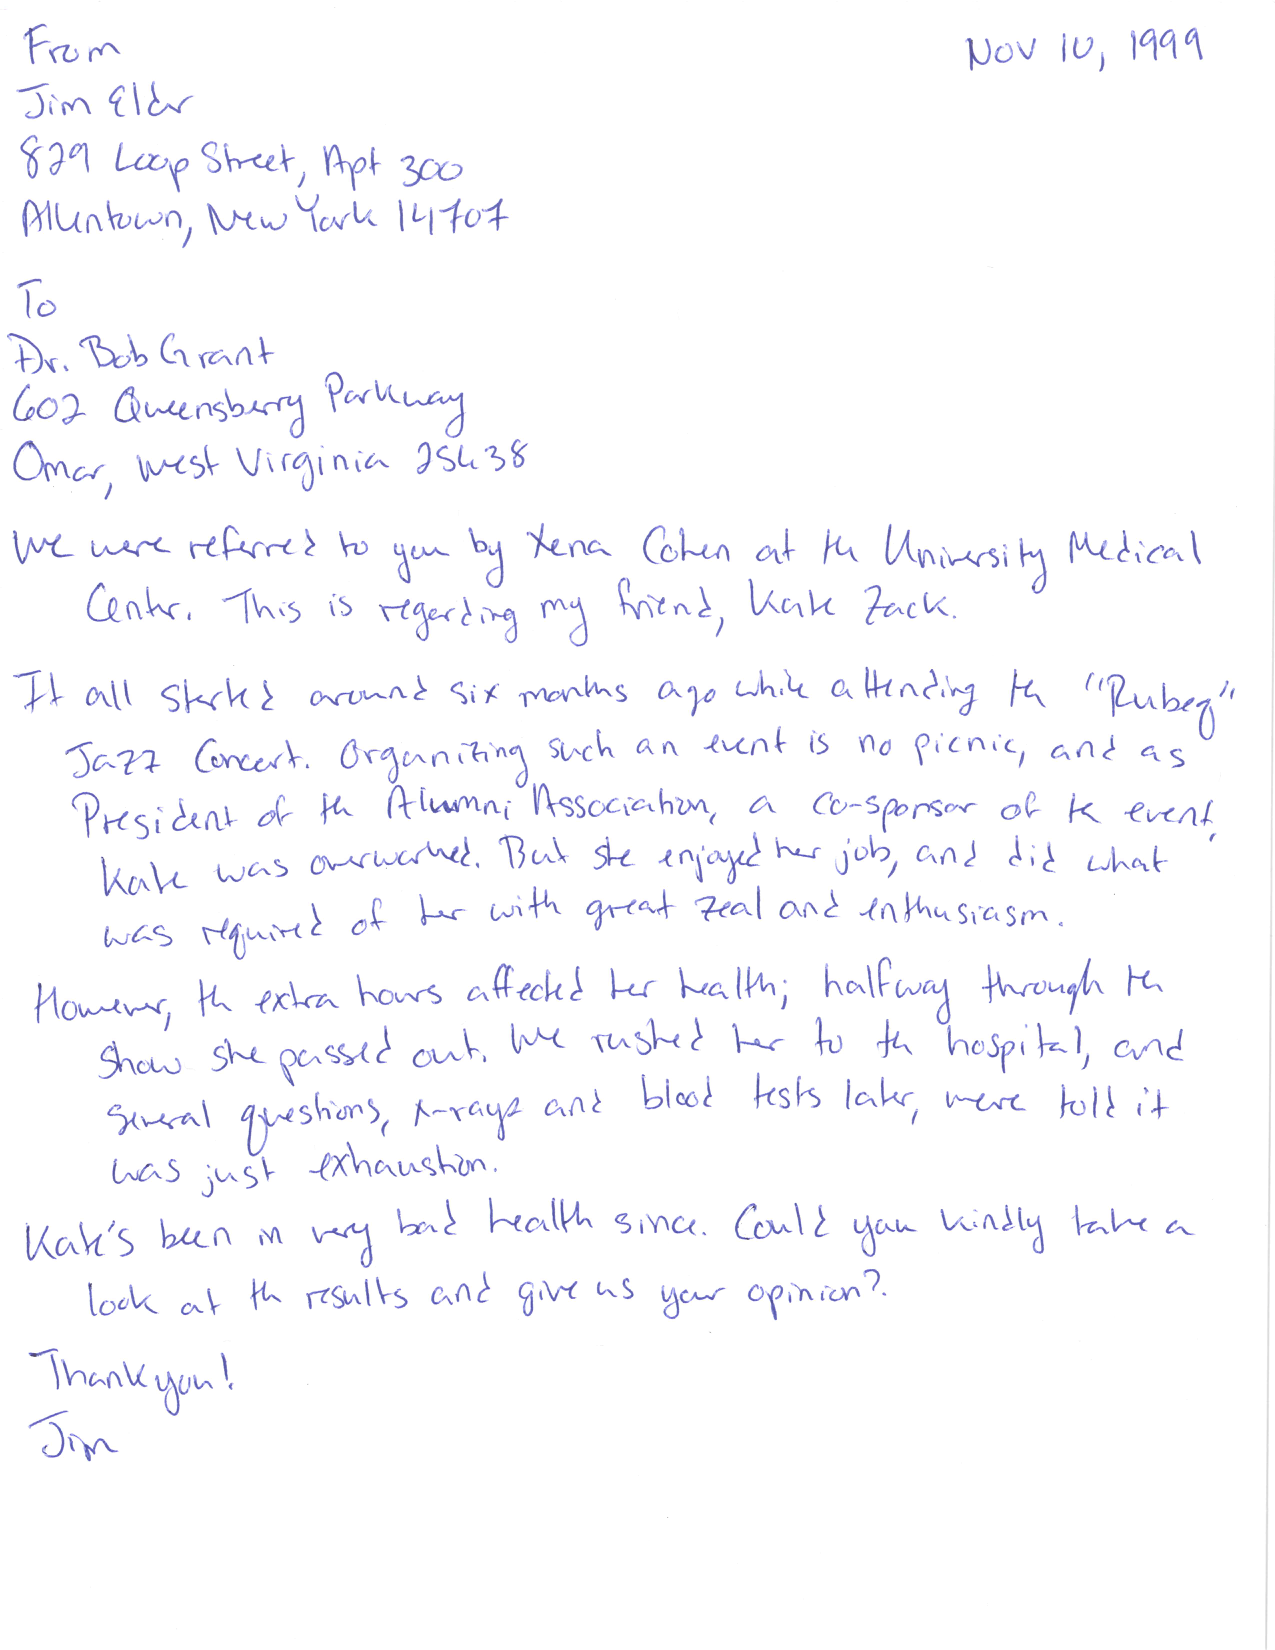 Nov 10, 1999
From
Jim Elder
829 Loop Street, Apt 300
Allentown, New York 14707
To
Dr. Bob Grant
602 Queensberry Parkway
Omar, West Virginia 25638
We were referred to you by Xena Cohen at the University Medical
Center. This is regarding my friend, Kate Zack.
It all started around six months ago while attending the "Rubeq"
Jazz Concert. Organizing such an event is no picnic, and as
President of the Alumni Association, a co-sponsor of the event,
Kate was overworked. But she enjoyed her job, and did what
was required of her with great zeal and enthusiasm.
However, the extra hours affected her health; halfway through the
show she passed out. We rushed her to the hospital, and
several questions, x-rays and blood tests later, were told it
was just exhaustion.
Kate's been in very bad health since. Could you kindly take a
look at the results and give us your opinion?
Thank you!
Jim